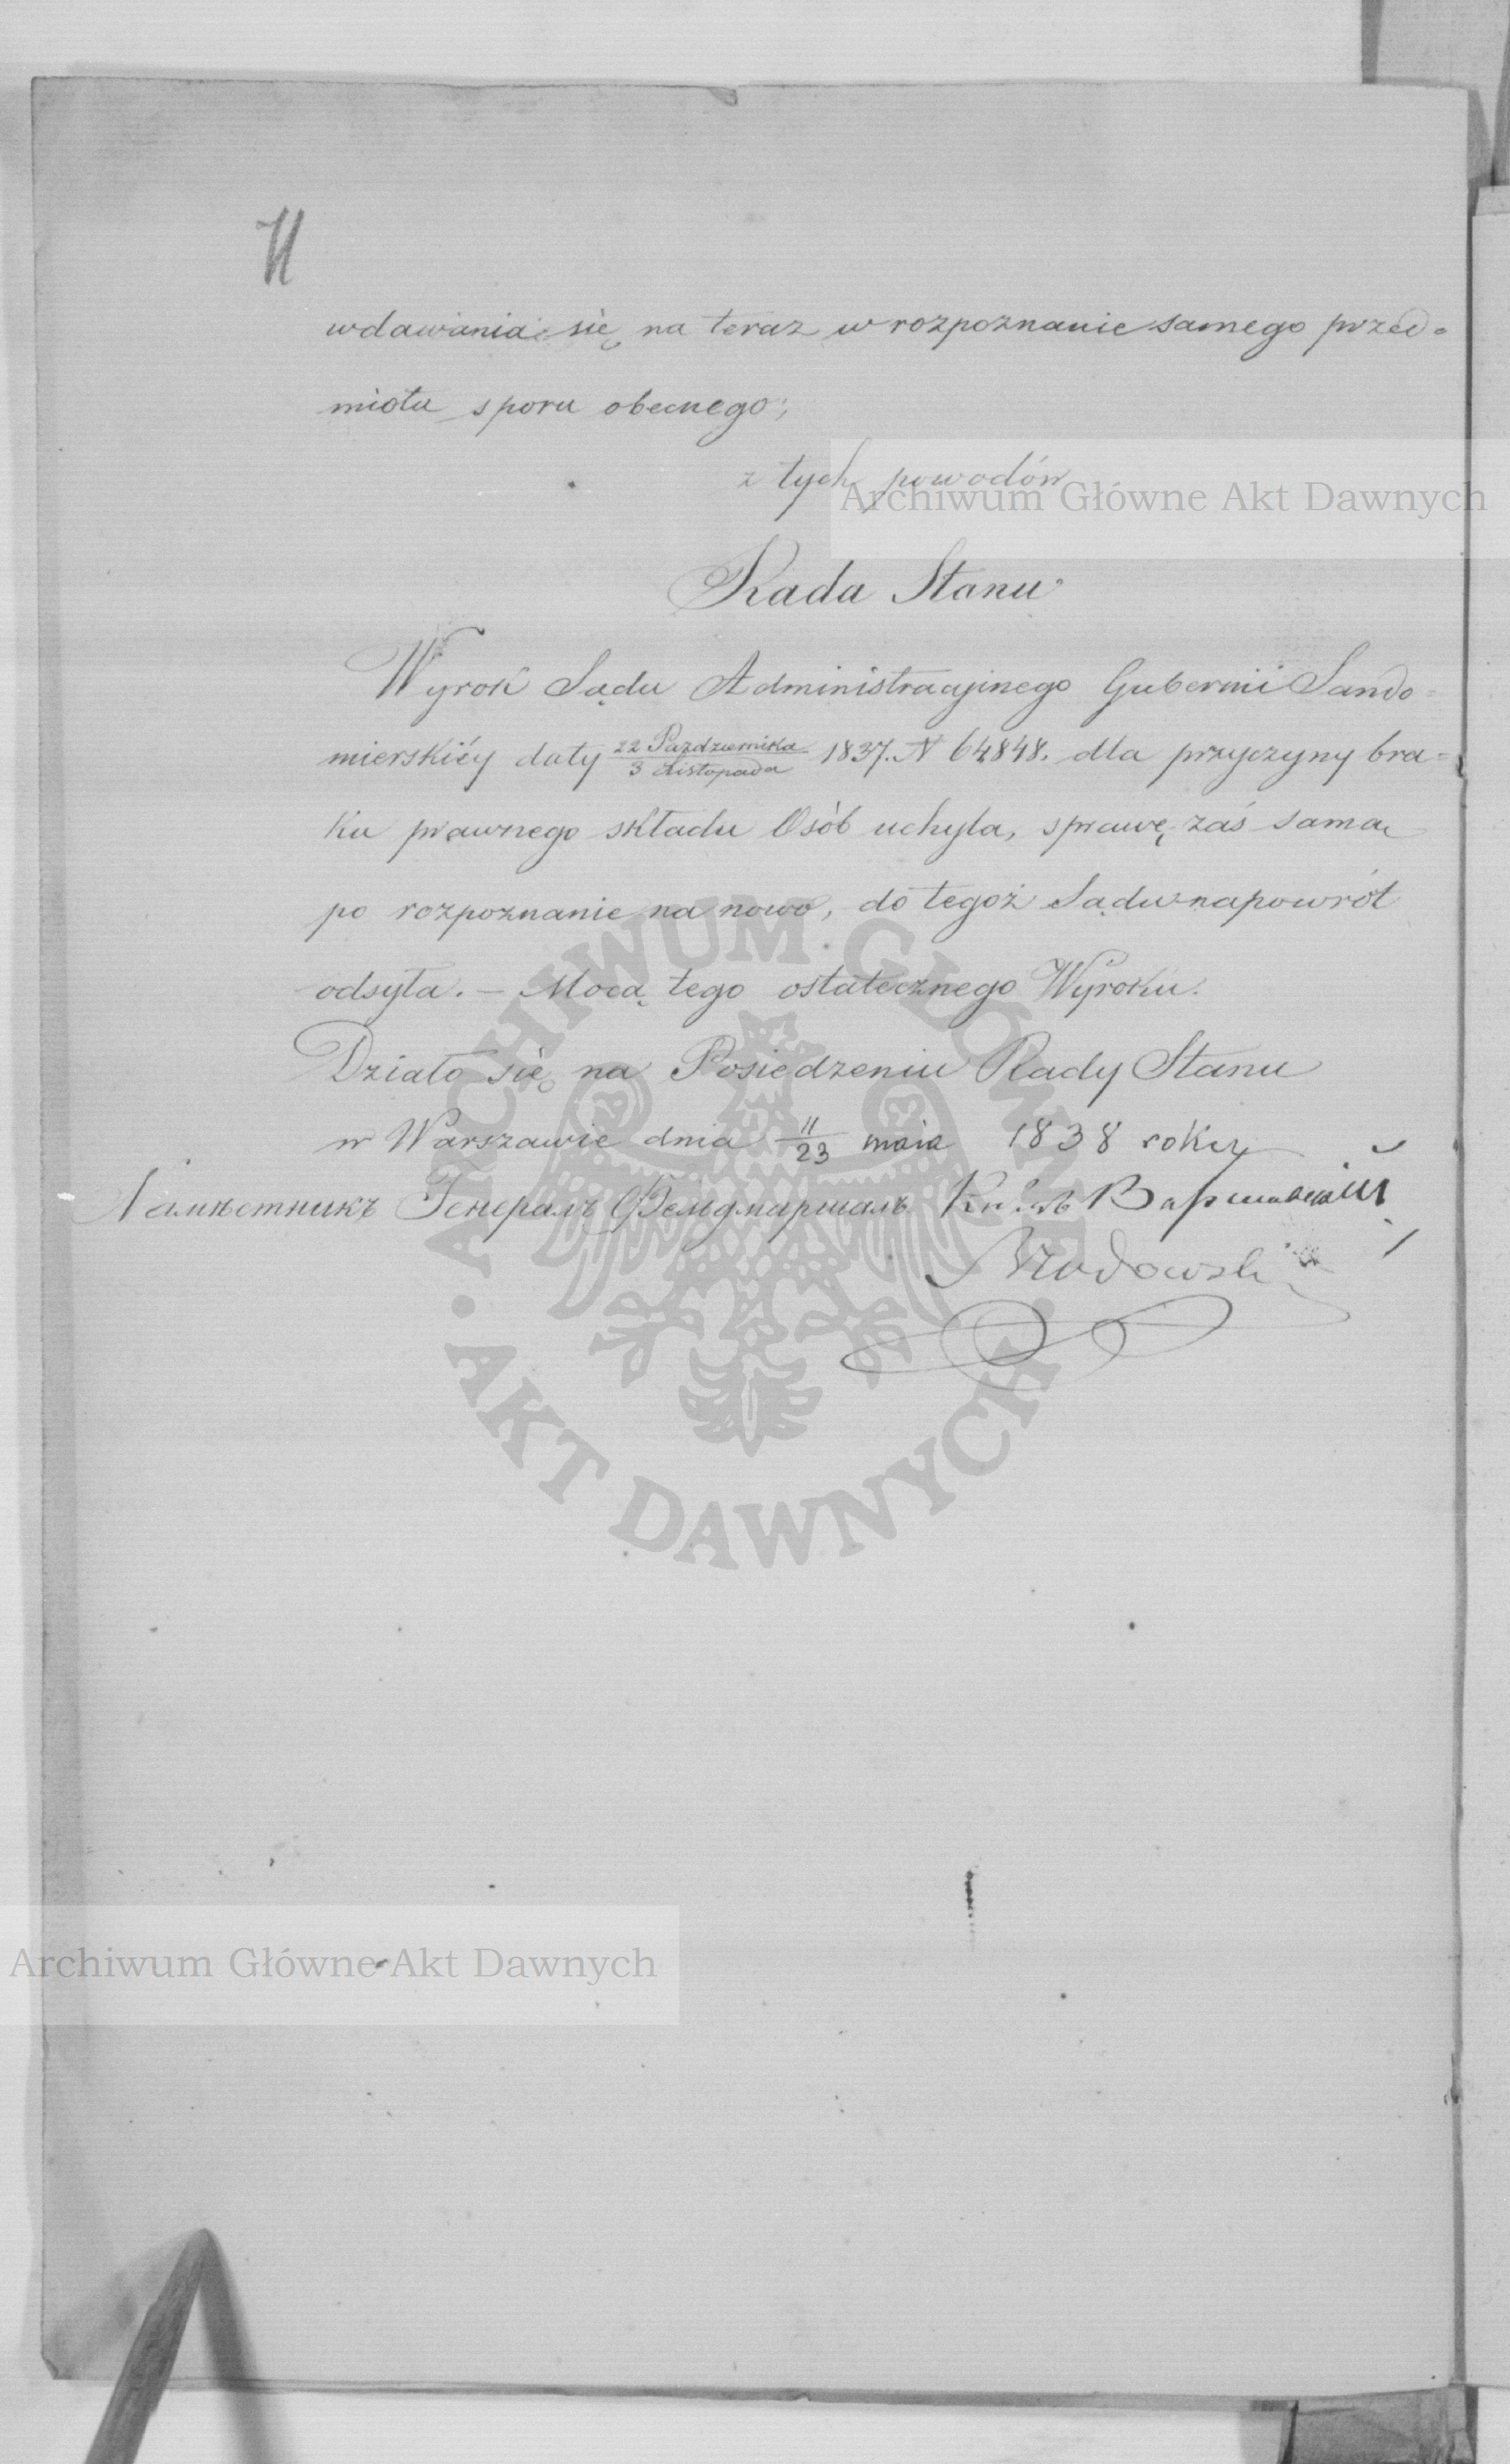 11
wdawania się na teraz w rozpoznanie samego przed-
miotu sporu obecnego;
z tych powodów
Archiwum Główne Akt Dawnych
Rada Stanu
Wyrok Sądu Administracyjnego Gubernii Sando-
mierskiéy daty 22 Października/3 Listopada 1837. N 64848. dla przyczyny bra-
ku prawnego składu Osób uchyla, sprawę zaś samą
po rozpoznanie na nowo, do tegoż Sądu napowrót
odsyła. – Mocą tego ostatecznego Wyroku.
Działo się na Posiedzeniu Rady Stanu
w Warszawie dnia 11/23 maia 1838 roku
Намѣстникъ Генералъ Фельдмаршалъ Князь Варшавскій
Brodowski
ARCHIWUM GŁÓWNE
AKT DAWNYCH
Archiwum Główne Akt Dawnych